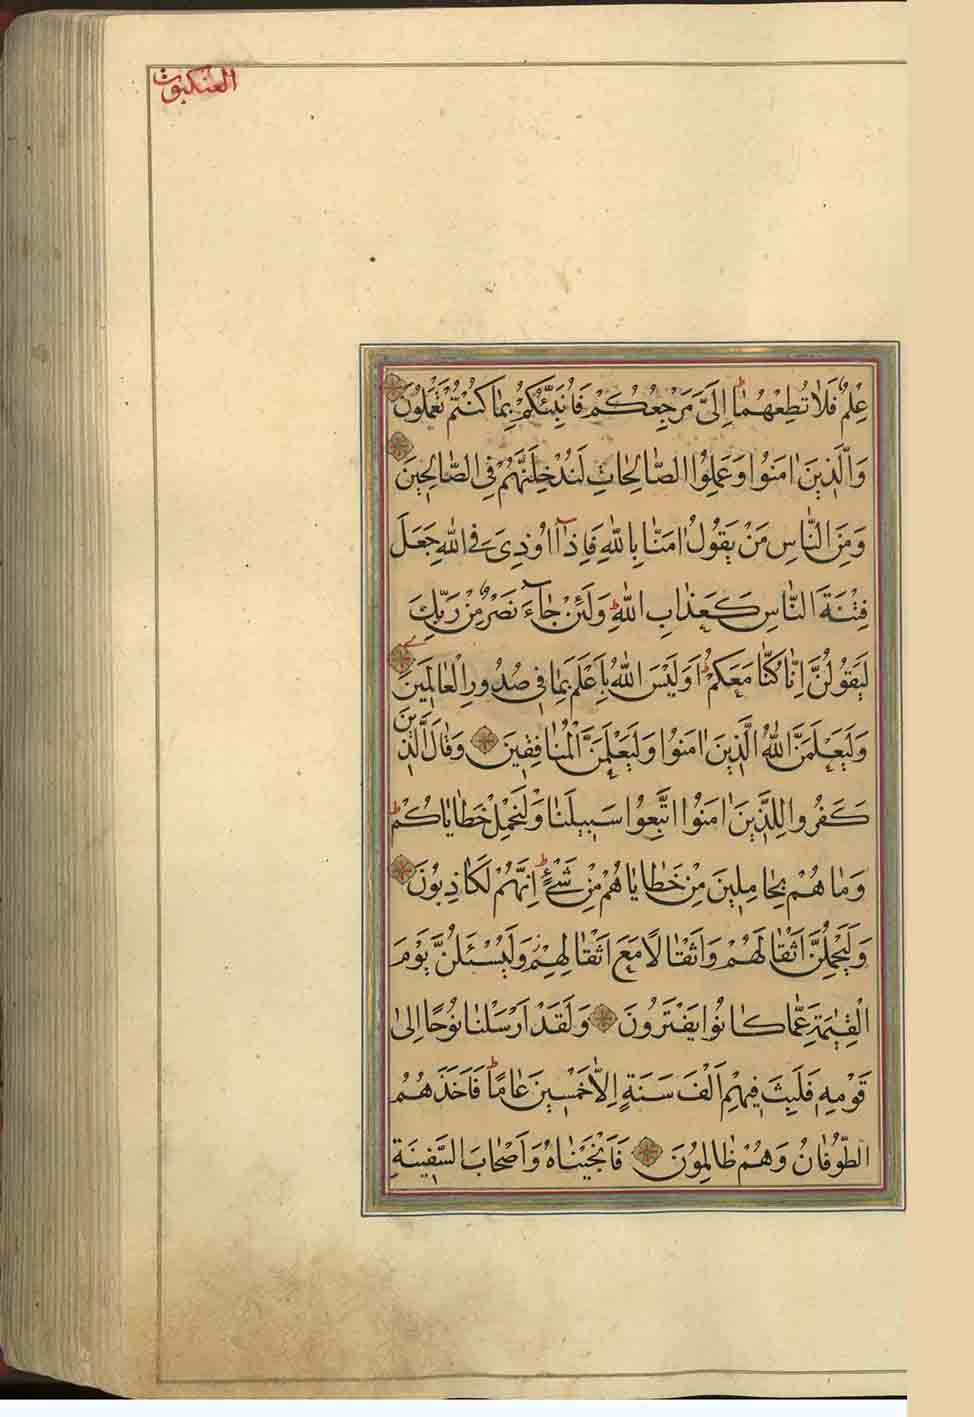 العنكبوت
عِلْمٌ فَلَا تُطِعْهُمَا اِلَىَّ مَرْجِعُكُمْ فَاُنَبِّئُكُمْ بِمَا كُنْتُمْ تَعْمَلُونَ
وَالَّذِينَ اٰمَنُوا وَعَمِلُوا الصَّالِحَاتِ لَنُدْخِلَنَّهُمْ فِى الصَّالِحِينَ
وَمِنَ النَّاسِ مَنْ يَقُولُ اٰمَنَّا بِاللّٰهِ فَاِذَا اُوذِىَ فِى اللّٰهِ جَعَلَ
فِتْنَةَ النَّاسِ كَعَذَابِ اللّٰهِ وَلَئِنْ جَاءَ نَصْرٌ مِنْ رَبِّكَ
لَيَقُولُنَّ اِنَّا كُنَّا مَعَكُمْ اَوَلَيْسَ اللّٰهُ بِاَعْلَمَ بِمَا فِى صُدُورِ الْعَالَمِينَ
وَلَيَعْلَمَنَّ اللّٰهُ الَّذِينَ اٰمَنُوا وَلَيَعْلَمَنَّ الْمُنَافِقِينَ وَقَالَ الَّذِينَ
كَفَرُوا لِلَّذِينَ اٰمَنُوا اتَّبِعُوا سَبِيلَنَا وَلْنَحْمِلْ خَطَايَاكُمْ
وَمَا هُمْ بِحَامِلِينَ مِنْ خَطَايَاهُمْ مِنْ شَىْءٍ اِنَّهُمْ لَكَاذِبُونَ
وَلَيَحْمِلُنَّ اَثْقَالَهُمْ وَاَثْقَالًا مَعَ اَثْقَالِهِمْ وَلَيُسْئَلُنَّ يَوْمَ
الْقِيٰمَةِ عَمَّا كَانُوا يَفْتَرُونَ وَلَقَدْ اَرْسَلْنَا نُوحًا اِلٰى
قَوْمِهِ فَلَبِثَ فِيهِمْ اَلْفَ سَنَةٍ اِلَّا خَمْسِينَ عَامًا فَاَخَذَهُمُ
الطُّوفَانُ وَهُمْ ظَالِمُونَ فَاَنْجَيْنَاهُ وَاَصْحَابَ السَّفِينَةِ